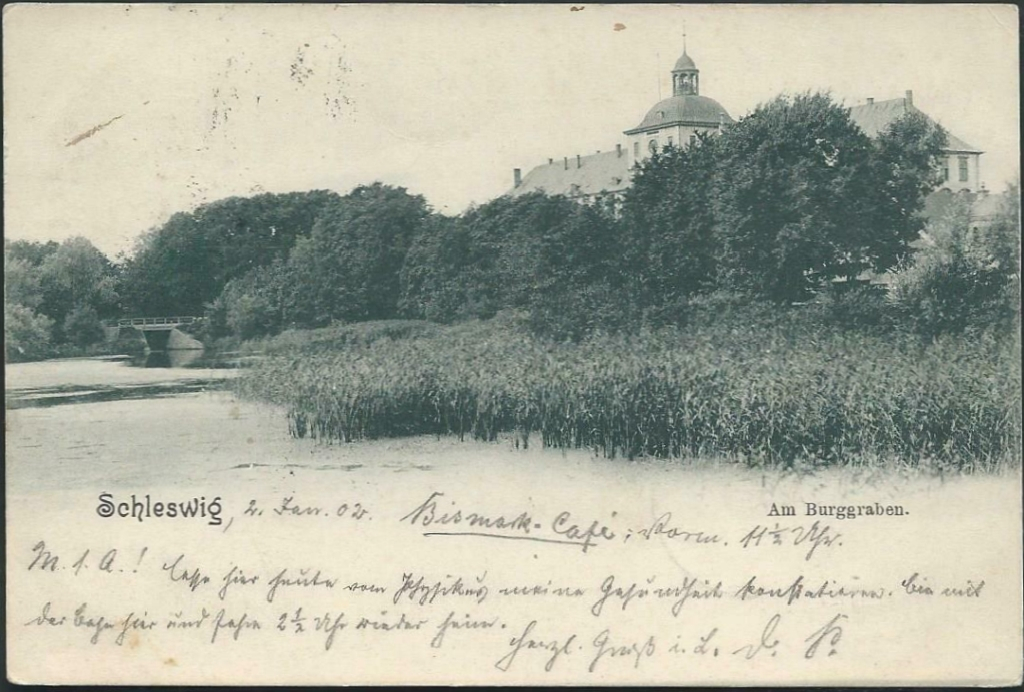 Schleswig, 2. Jan. 02. Bismark-Café; Vorm. 11½ Uhr.
Am Burggraben.
M. l. A.! Lasse hier heute vom Physikus meine Gesundheit konstatieren. Bin mit
der Bahn hier und fahre 2½ Uhr wieder heim.
Herzl. Gruß i. L. D.